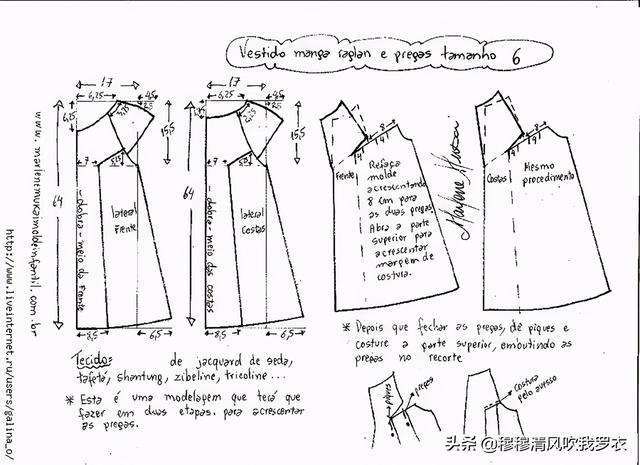 Vestido manga raglan e pregas tamanho 6
17
6,25
4,5
2,5
6,25
15,5
7
64
lateral Frente
dobra - meio da Frente
8,5
6,5
17
6,25
4,5
2,5
15,5
7
64
lateral Costas
dobra - meio das costas
8,5
6,5
8
4
4
Frente
Refaça
molde
acrescentando
8 cm para
as duas pregas.
Abra a parte
superior para
acrescentar
margem de
costura.
Marlene Mukai
8
4
4
Costas
Mesmo
procedimento
Tecido: de jacquard de seda,
tafetá, shantung, zibeline, tricoline ...
* Esta é uma modelagem que terá que
fazer em duas etapas. para acrescentar
as pregas.
* Depois que fechar as pregas, dê piques e
costure a parte superior, embutindo as
pregas no recorte
piques
pregas
costura
pelo avesso
www.marlenemukaimoldeinfantil.com.br
http://www.liveinternet.ru/users/galina_o/
头条 @穆穆清风吹我罗衣